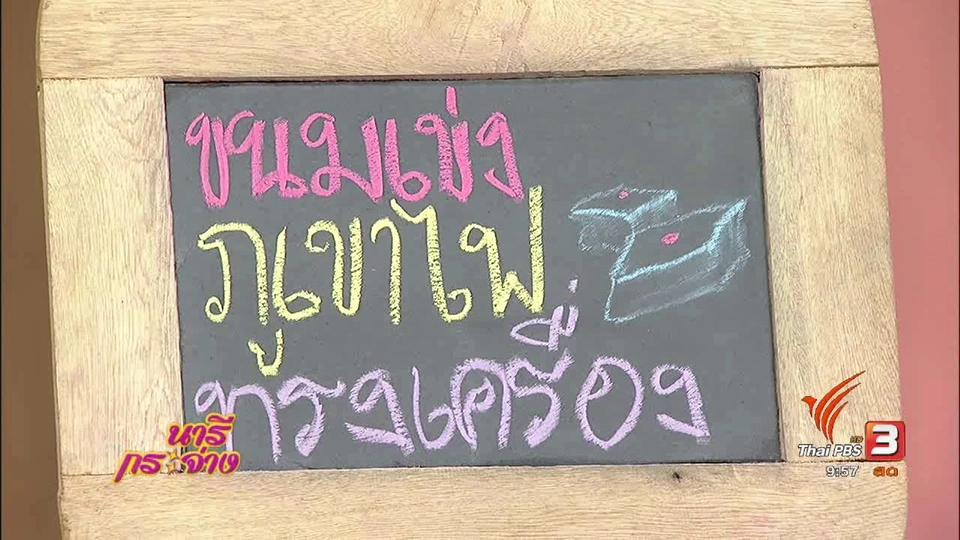 ขนมเข่ง
ภูเขาไฟ
ทรงเครื่อง
นารี
กระจ่าง
Thai PBS HD 3
9:57 สด